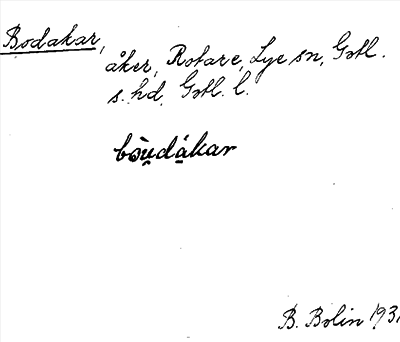 Bodakar,
åker, Rotare, Lye sn, Gotl.
s. hd, Gotl. l.
bòu̯dá̱kar
B. Bolin 1931